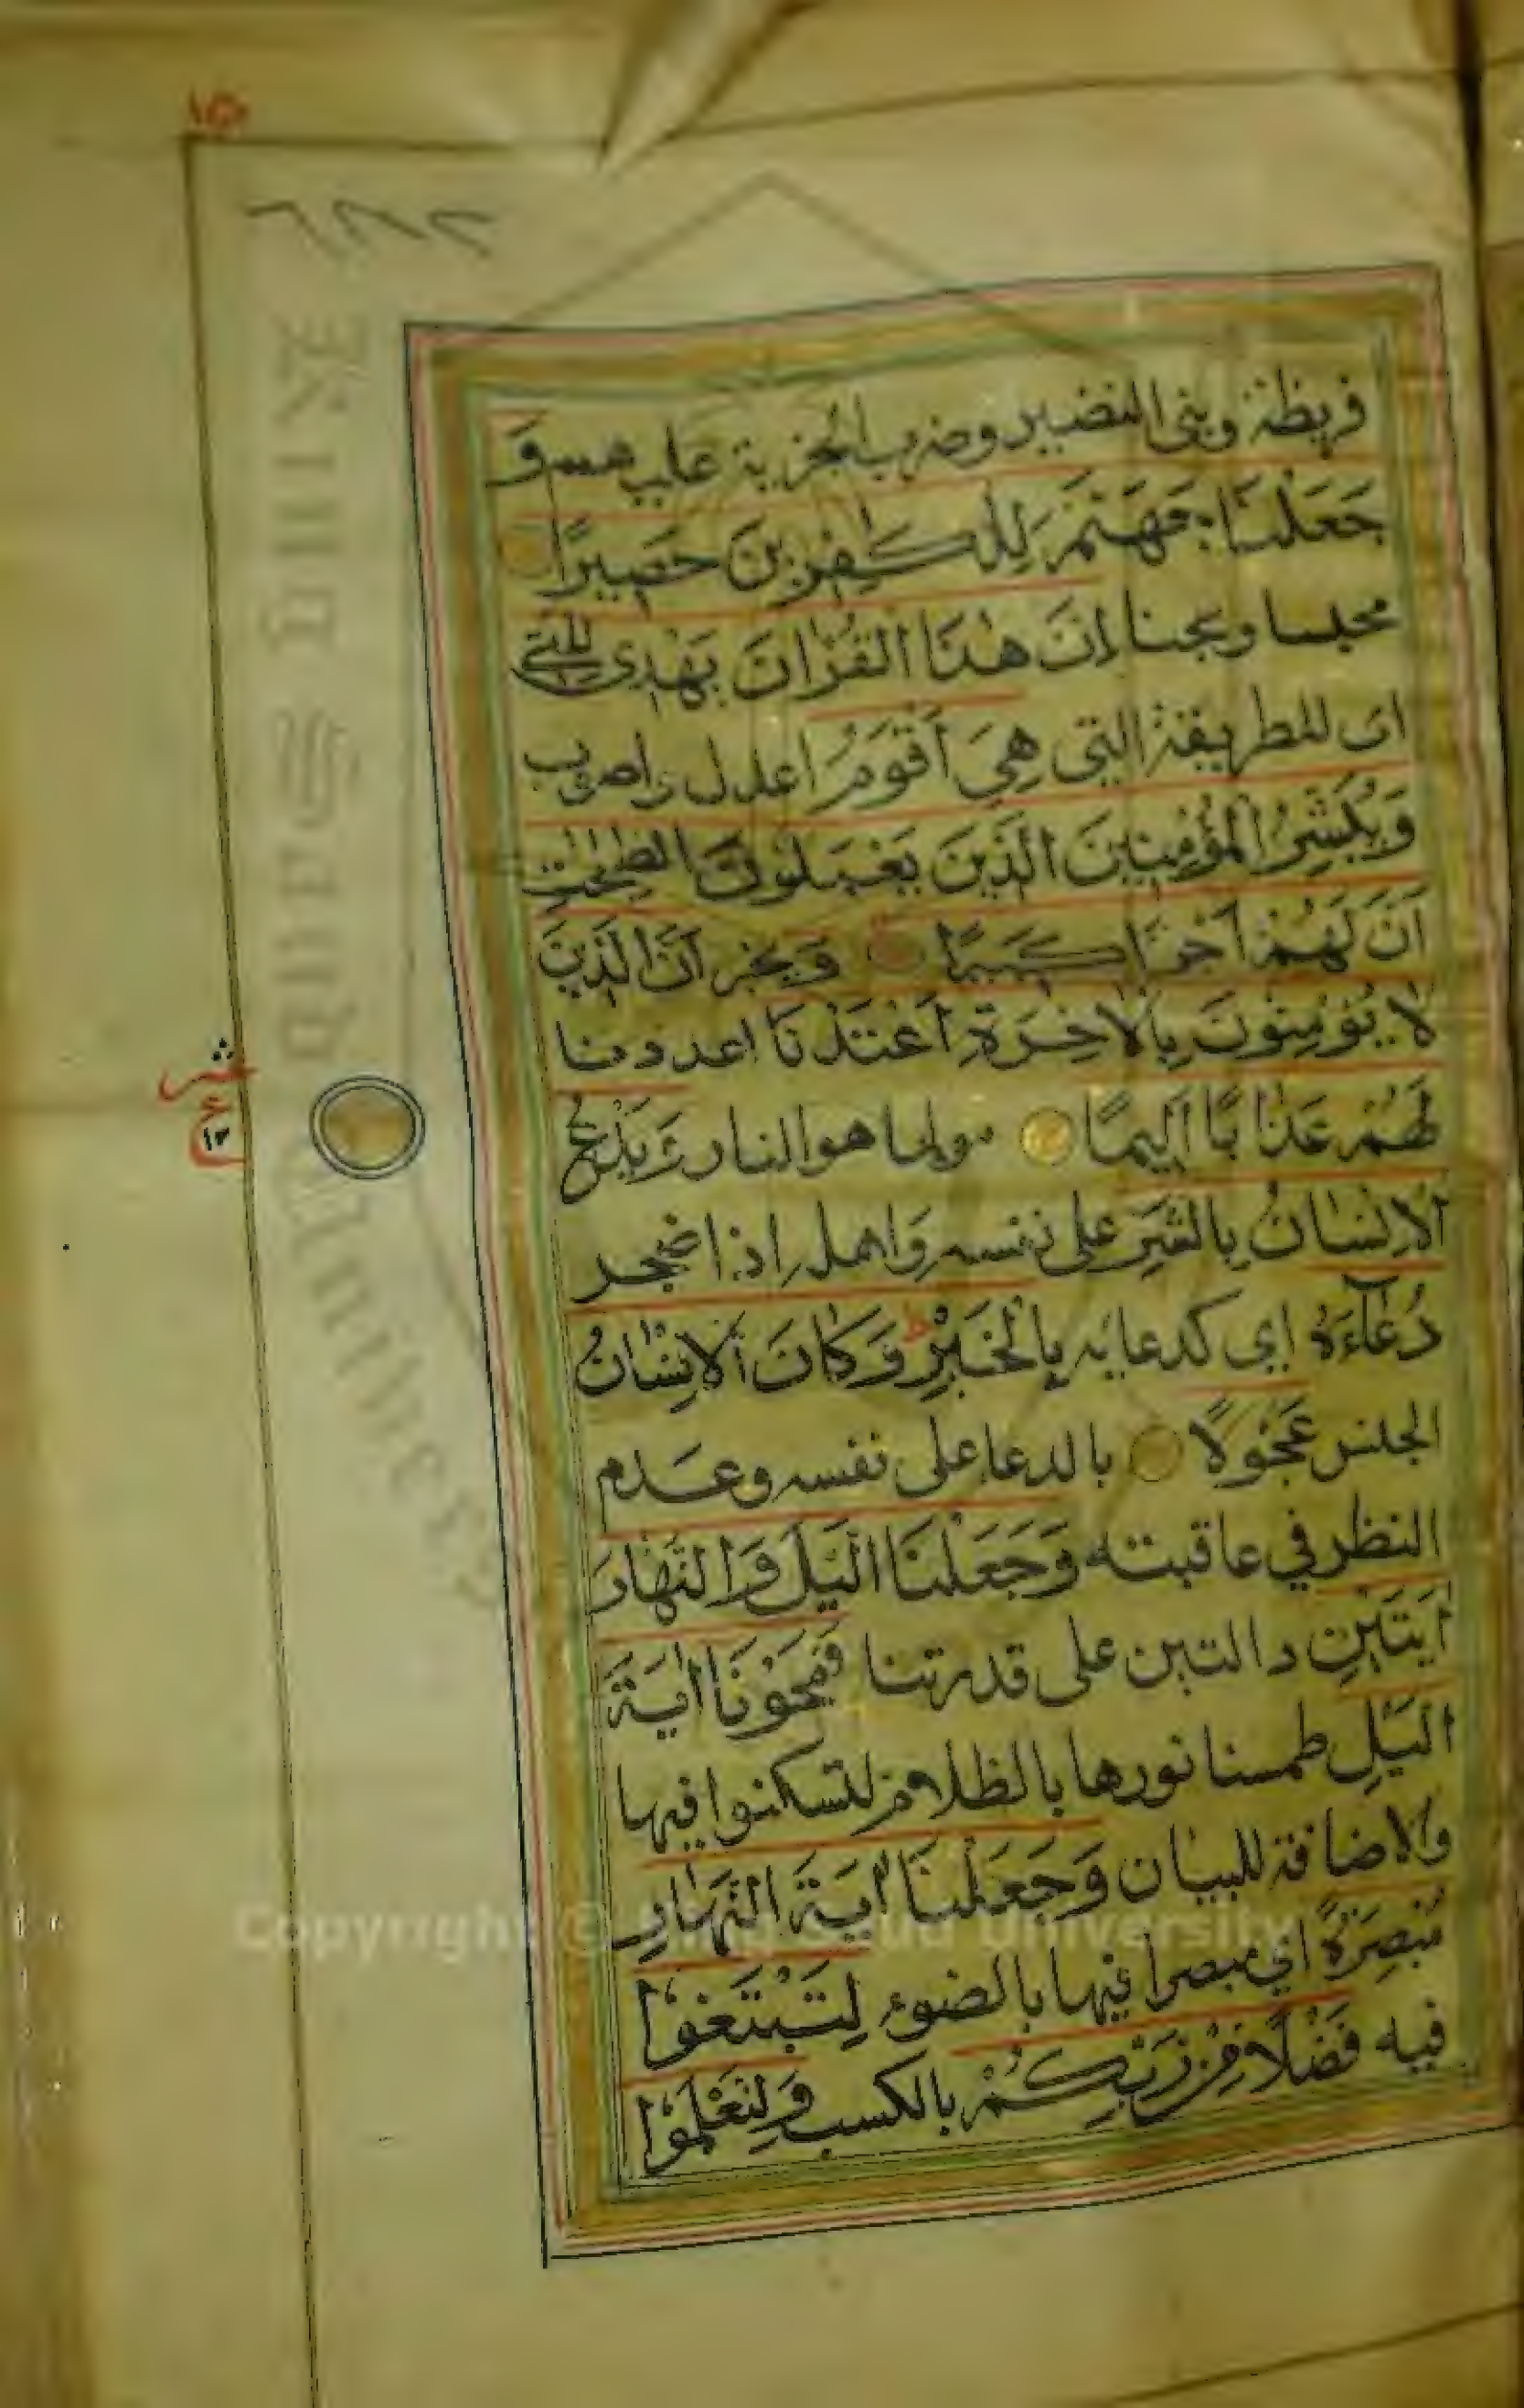 ١٥
٦٨٢
قريظة وبنى النضير وضرب الجزية عليهم وَ
جَعَلْنَا جَهَنَّمَ لِلْكٰفِرِينَ حَصِيرًا
محبسا وسجنا اِنَّ هٰذَا الْقُرْاٰنَ يَهْدِى لِلَّتِى
اى للطريقة التى هِيَ اَقْوَمُ اعدل واصوب
وَيُبَشِّرُ الْمُؤْمِنِينَ الَّذِينَ يَعْمَلُونَ الصّٰلِحٰتِ
اَنَّ لَهُمْ اَجْرًا كَبِيرًا وَ يخبر اَنَّ الَّذِينَ
لَا يُؤْمِنُونَ بِالْاٰخِرَةِ اَعْتَدْنَا اعددنا
لَهُمْ عَذَابًا اَلِيمًا مولما هو النار وَيَدْعُ
الْاِنْسَانُ بِالشَّرِّ على نفسه واهله اذا ضجر
دُعَآءَهُ اى كدعايه بِالْخَيْرِ ط وَكَانَ الْاِنْسَانُ
الجنس عَجُولًا بالدعا على نفسه وعدم
النظر في عاقبته وَجَعَلْنَا الَّيْلَ وَالنَّهَارَ
اٰيَتَيْنِ دالتين على قدرتنا فَمَحَوْنَا اٰيَةَ
الَّيْلِ طمسنا نورها بالظلام لتسكنوا فيها
والاضافة للبيان وَجَعَلْنَا اٰيَةَ النَّهَارِ
مُبْصِرَةً اي مبصرا فيها بالضوء لِتَبْتَغُوا
فيه فَضْلًا مِنْ رَبِّكُمْ بالكسب وَلِتَعْلَمُوا
عشر
ع
١٢
Copyright © King Saud University